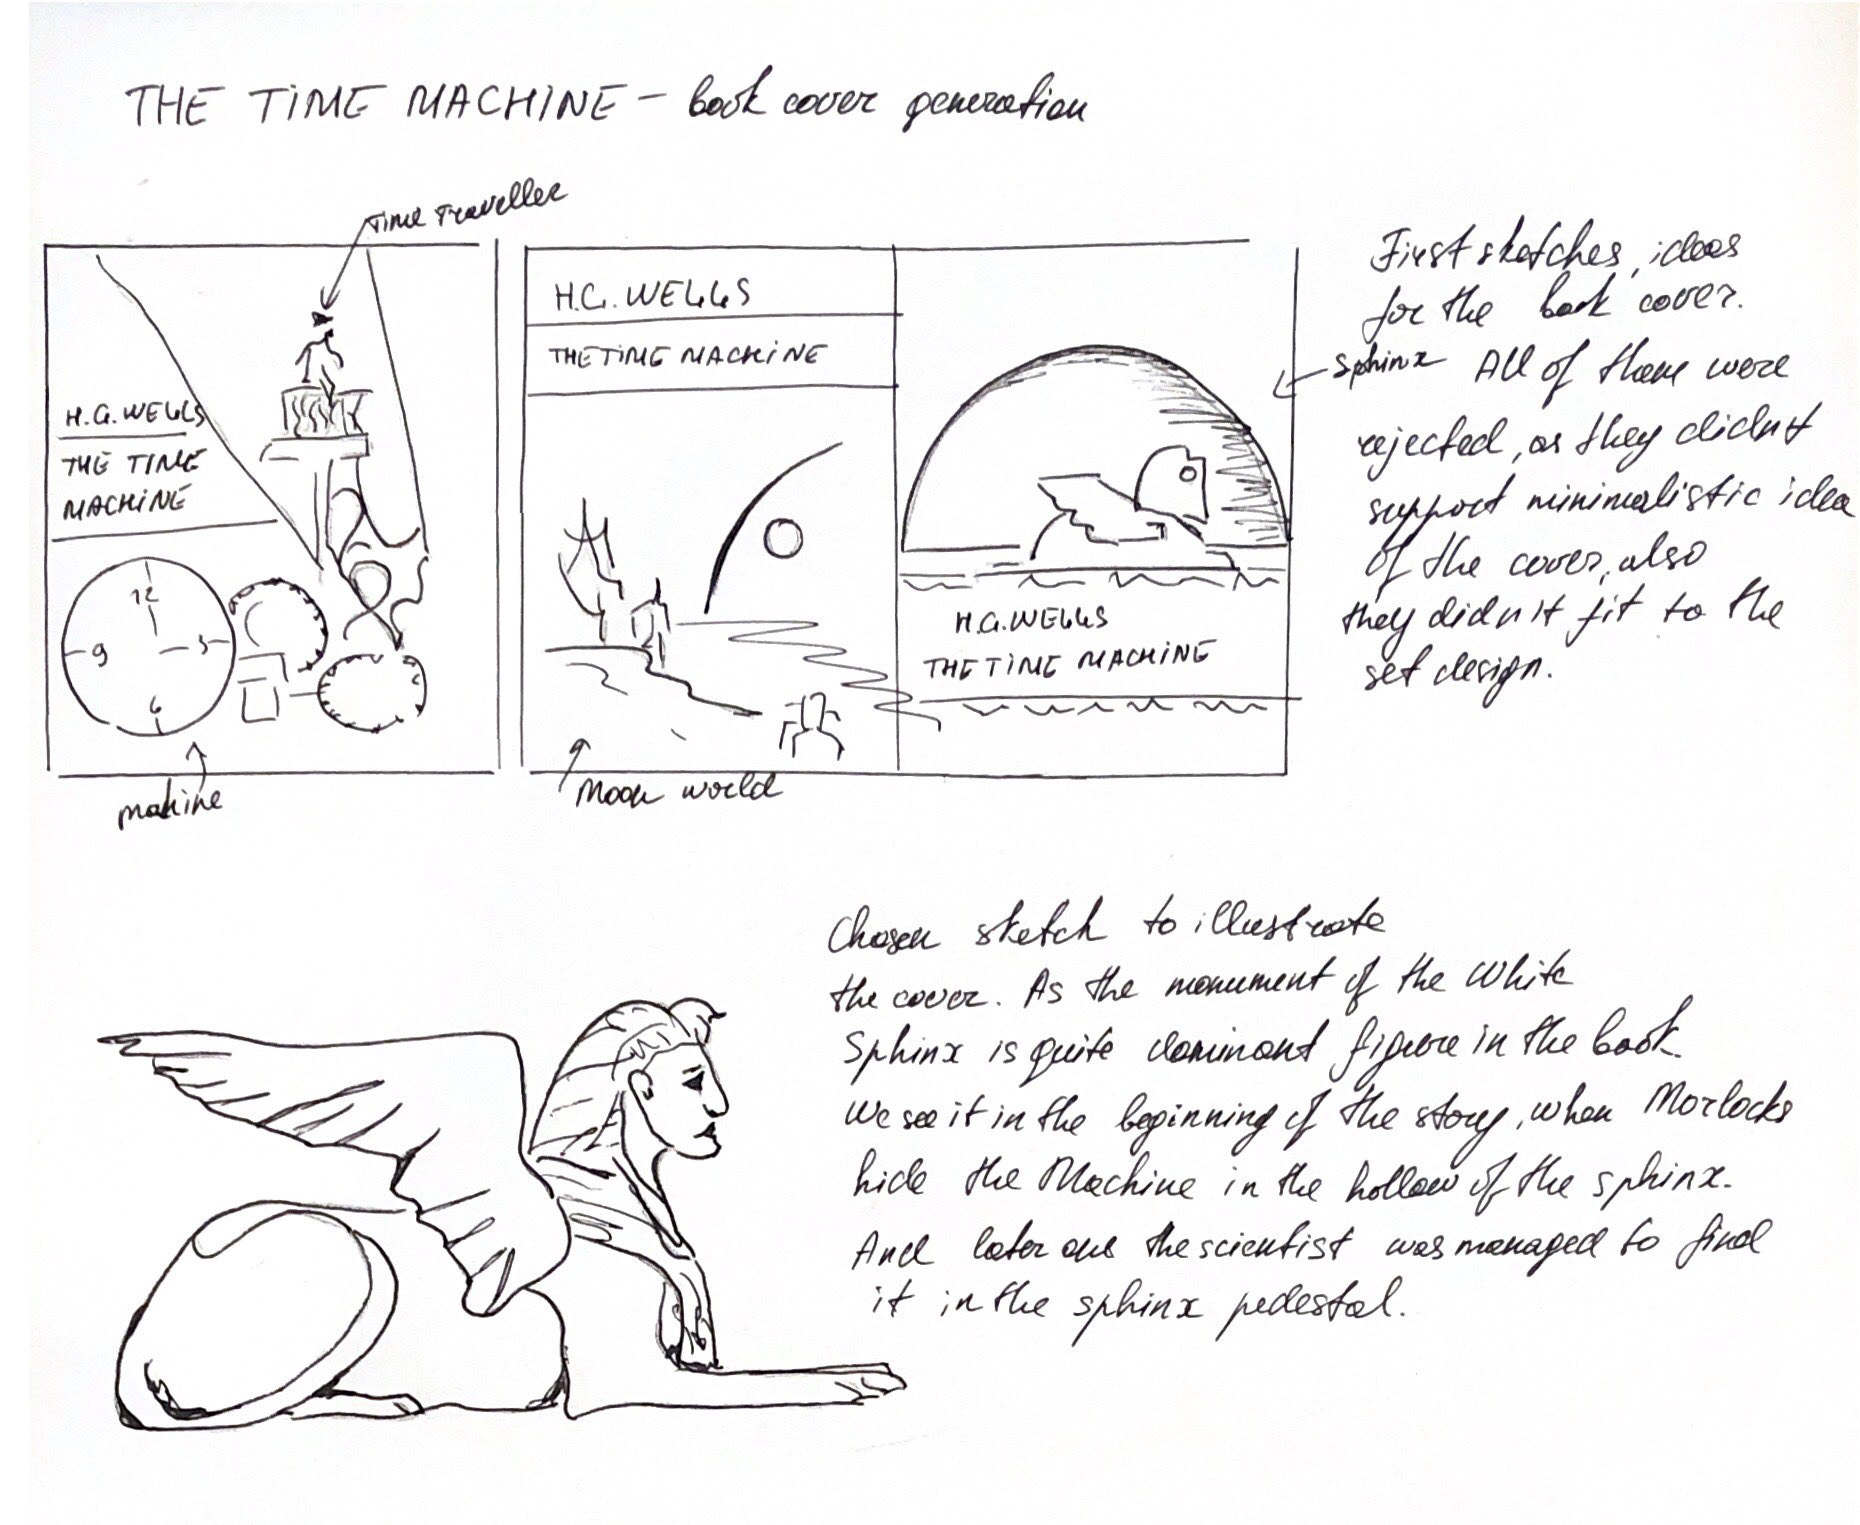 THE TIME MACHINE – book cover generation
Time Traveller
H.G. WELLS
THE TIME
MACHINE
12
3
6
9
mahine
H.G. WELLS
THE TIME MACHINE
Moon world
sphinx
H.G. WELLS
THE TIME MACHINE
First sketches, ideas
for the book cover.
All of them were
rejected, as they didnt
support minimalistic idea
of the cover, also
they didn't fit to the
set design.
Chosen sketch to illustrate
the cover. As the monument of the White
Sphinx is quite dominant figure in the book.
We see it in the beginning of the story, when Morlocks
hide the Machine in the hollow of the sphinx.
And later one the scientist was managed to find
it in the sphinx pedestal.